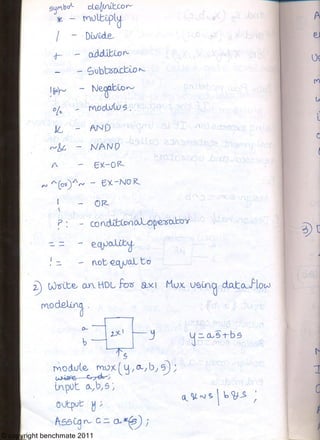 symbol definition
* - multiply
/ - Divide
+ - addition
- - Subtraction
- Negation
% - modulus.
& - AND
~& - NAND
^ - EX-OR
~^ (or) ^~ - EX-NOR
| - OR
?: - conditional operator
== - equality
!= - not equal to
2) Write an HDL for 2x1 Mux using data flow
modeling.
a
b
2x1
y
s
y = as + bs
module mux(y,a,b,s);
input a,b,s;
output y;
a & ~s | b & s ;
Assign
Copyright benchmate 2011